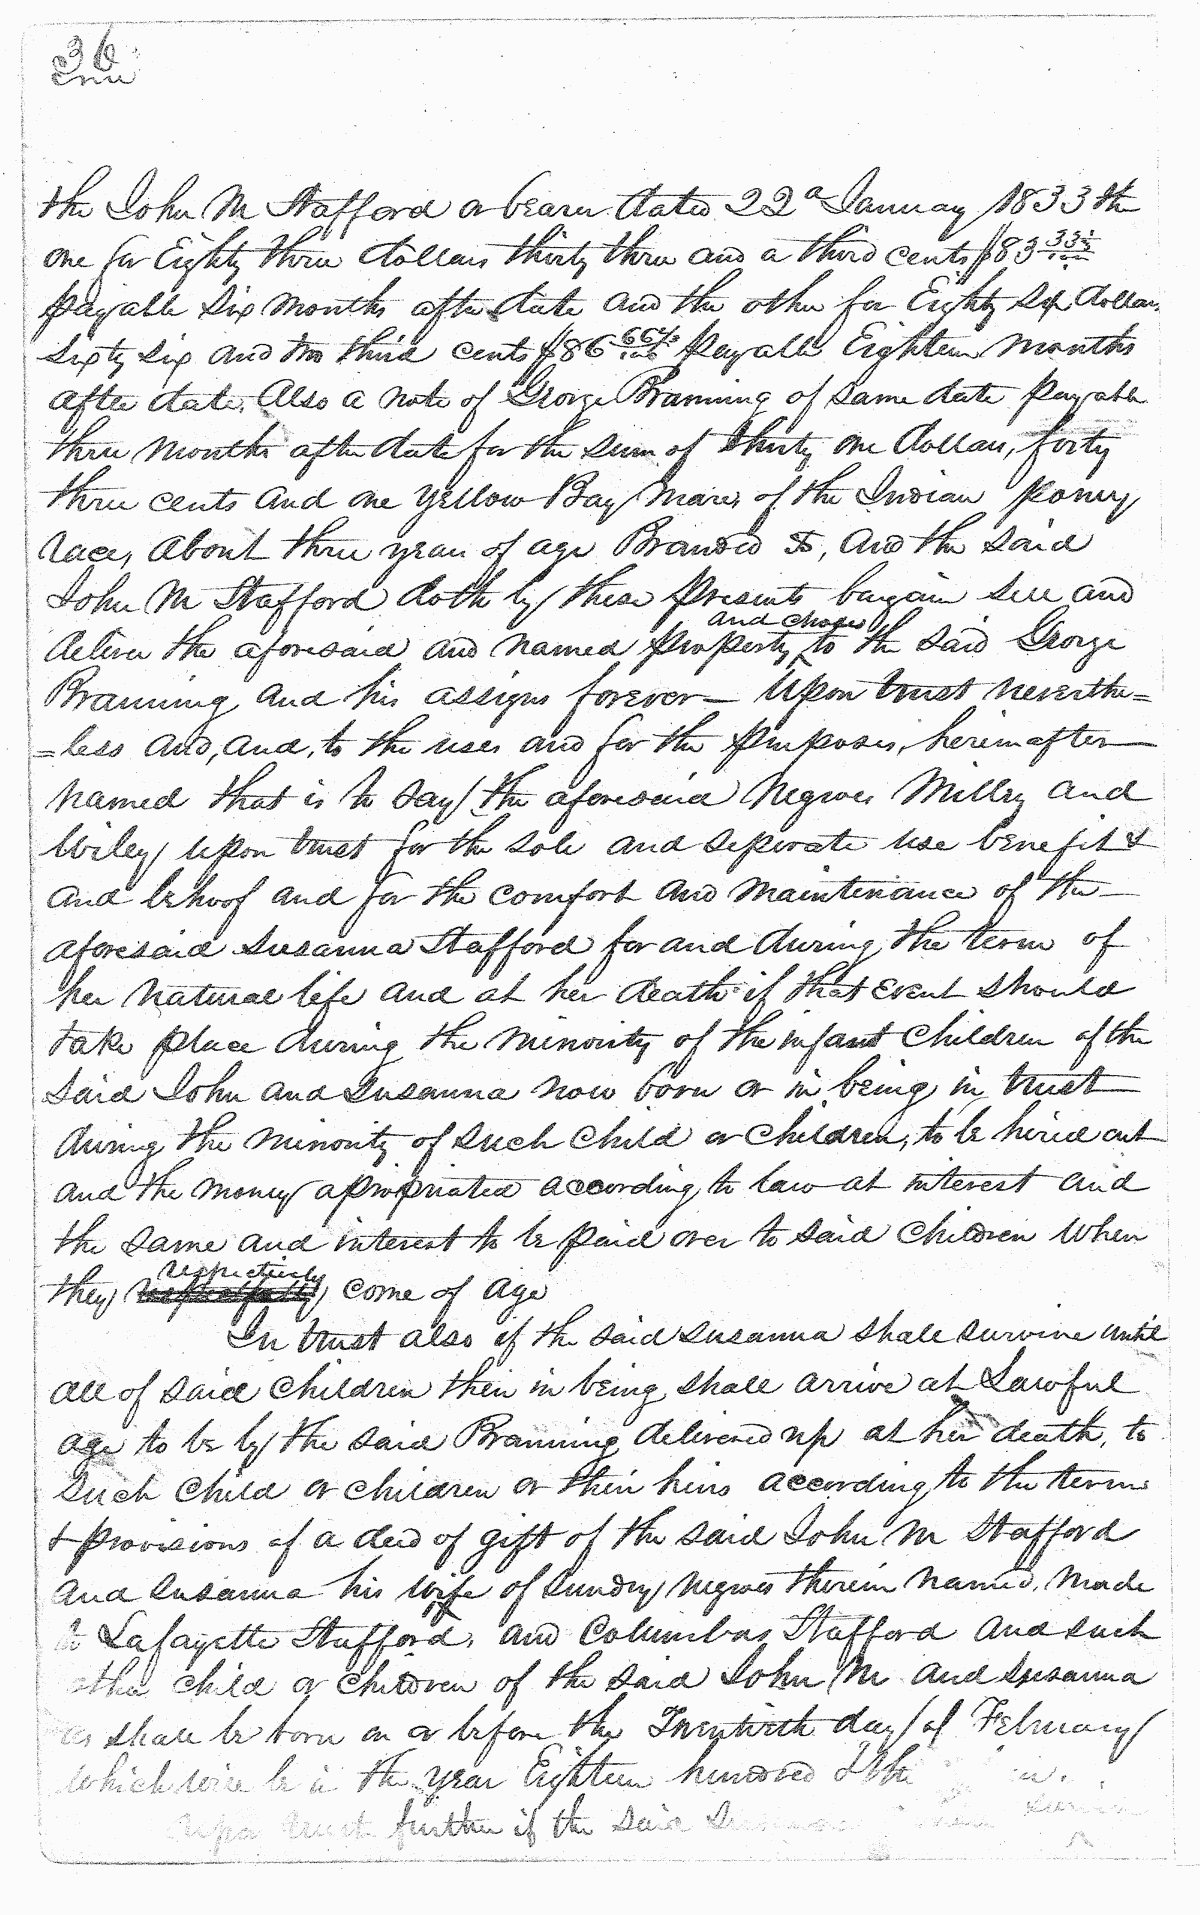 36
the John M Stafford or bearer dated 22d January 1833 the
one for Eighty three dollars thirty three and a third cents $83 33⅓
payable six months after date and the other for Eighty six dollars
sixty six and two third cents $86 66⅔ payable Eighteen months
after date. Also a note of George Branning of same date payable
three months after date for the sum of Thirty one dollars, forty
three cents and one yellow Bay Mare, of the Indian poney
race, about three years of age Branded S, and the said
John M Stafford doth by these presents bargain sell and
and choses
deliver the aforesaid and named property to the said George
Branning and his assigns forever— Upon trust neverthe=
=less and, and, to the uses and for the purposes, hereinafter—
named that is to say the aforesaid Negroes Milley and
Wiley upon trust for the sole and seperate use benefit &
and behoof and for the comfort and maintenance of the—
aforesaid Susanna Stafford for and during the term of
her natural life and at her death if that event should
take place during the minority of the infant children of the
said John and Susanna now born or in being in trust
during the minority of such child or children, to be hired out
and the money apropriated according to law at interest and
the same and interest to be paid over to said children when
respectively
they come of age
In trust also if the said Susanna shall survive until
all of said children then in being shall arrive at Lawful
age to be by the said Branning delivered up at her death, to
such child or children or their heirs according to the terms
& provisions of a deed of gift of the said John M Stafford
and Susanna his wife of sundry negroes therein named, made
to Lafayette Stafford, and Columbus Stafford and such
other child or children of the said John M and Susanna
as shall be born on or before the Twentieth day of February
which will be in the year Eighteen hundred &
upon trust further if the said Susanna